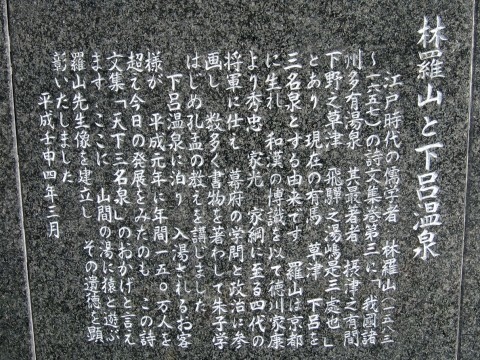 林羅山と下呂温泉
江戸時代の儒学者 林羅山(一五八三
〜一六五七)の詩文集巻第三に「我國諸
州多有温泉 其最著者 摂津之有間
下野之草津 飛騨之湯嶋是三處也」
とあり 現在の有馬 草津 下呂を
三名泉とする由来です 羅山は京都
に生れ 和漢の博識を以て徳川家康
より秀忠 家光 家綱に至る四代の
将軍に仕む 幕府の学問と政治に参
画し 数多く書物を著わして朱子学
はじめ孔孟の教えを講じました
下呂温泉に泊り 入湯されるお客
様が 平成元年に年間一五〇万人を
超え今日の発展をみたのも この詩
文集「天下三名泉」のおかげと言え
ます ここに 山間の湯に猿と遊ぶ
羅山先生像を建立し その遺徳を顕
彰いたしました
平成壬申四年三月